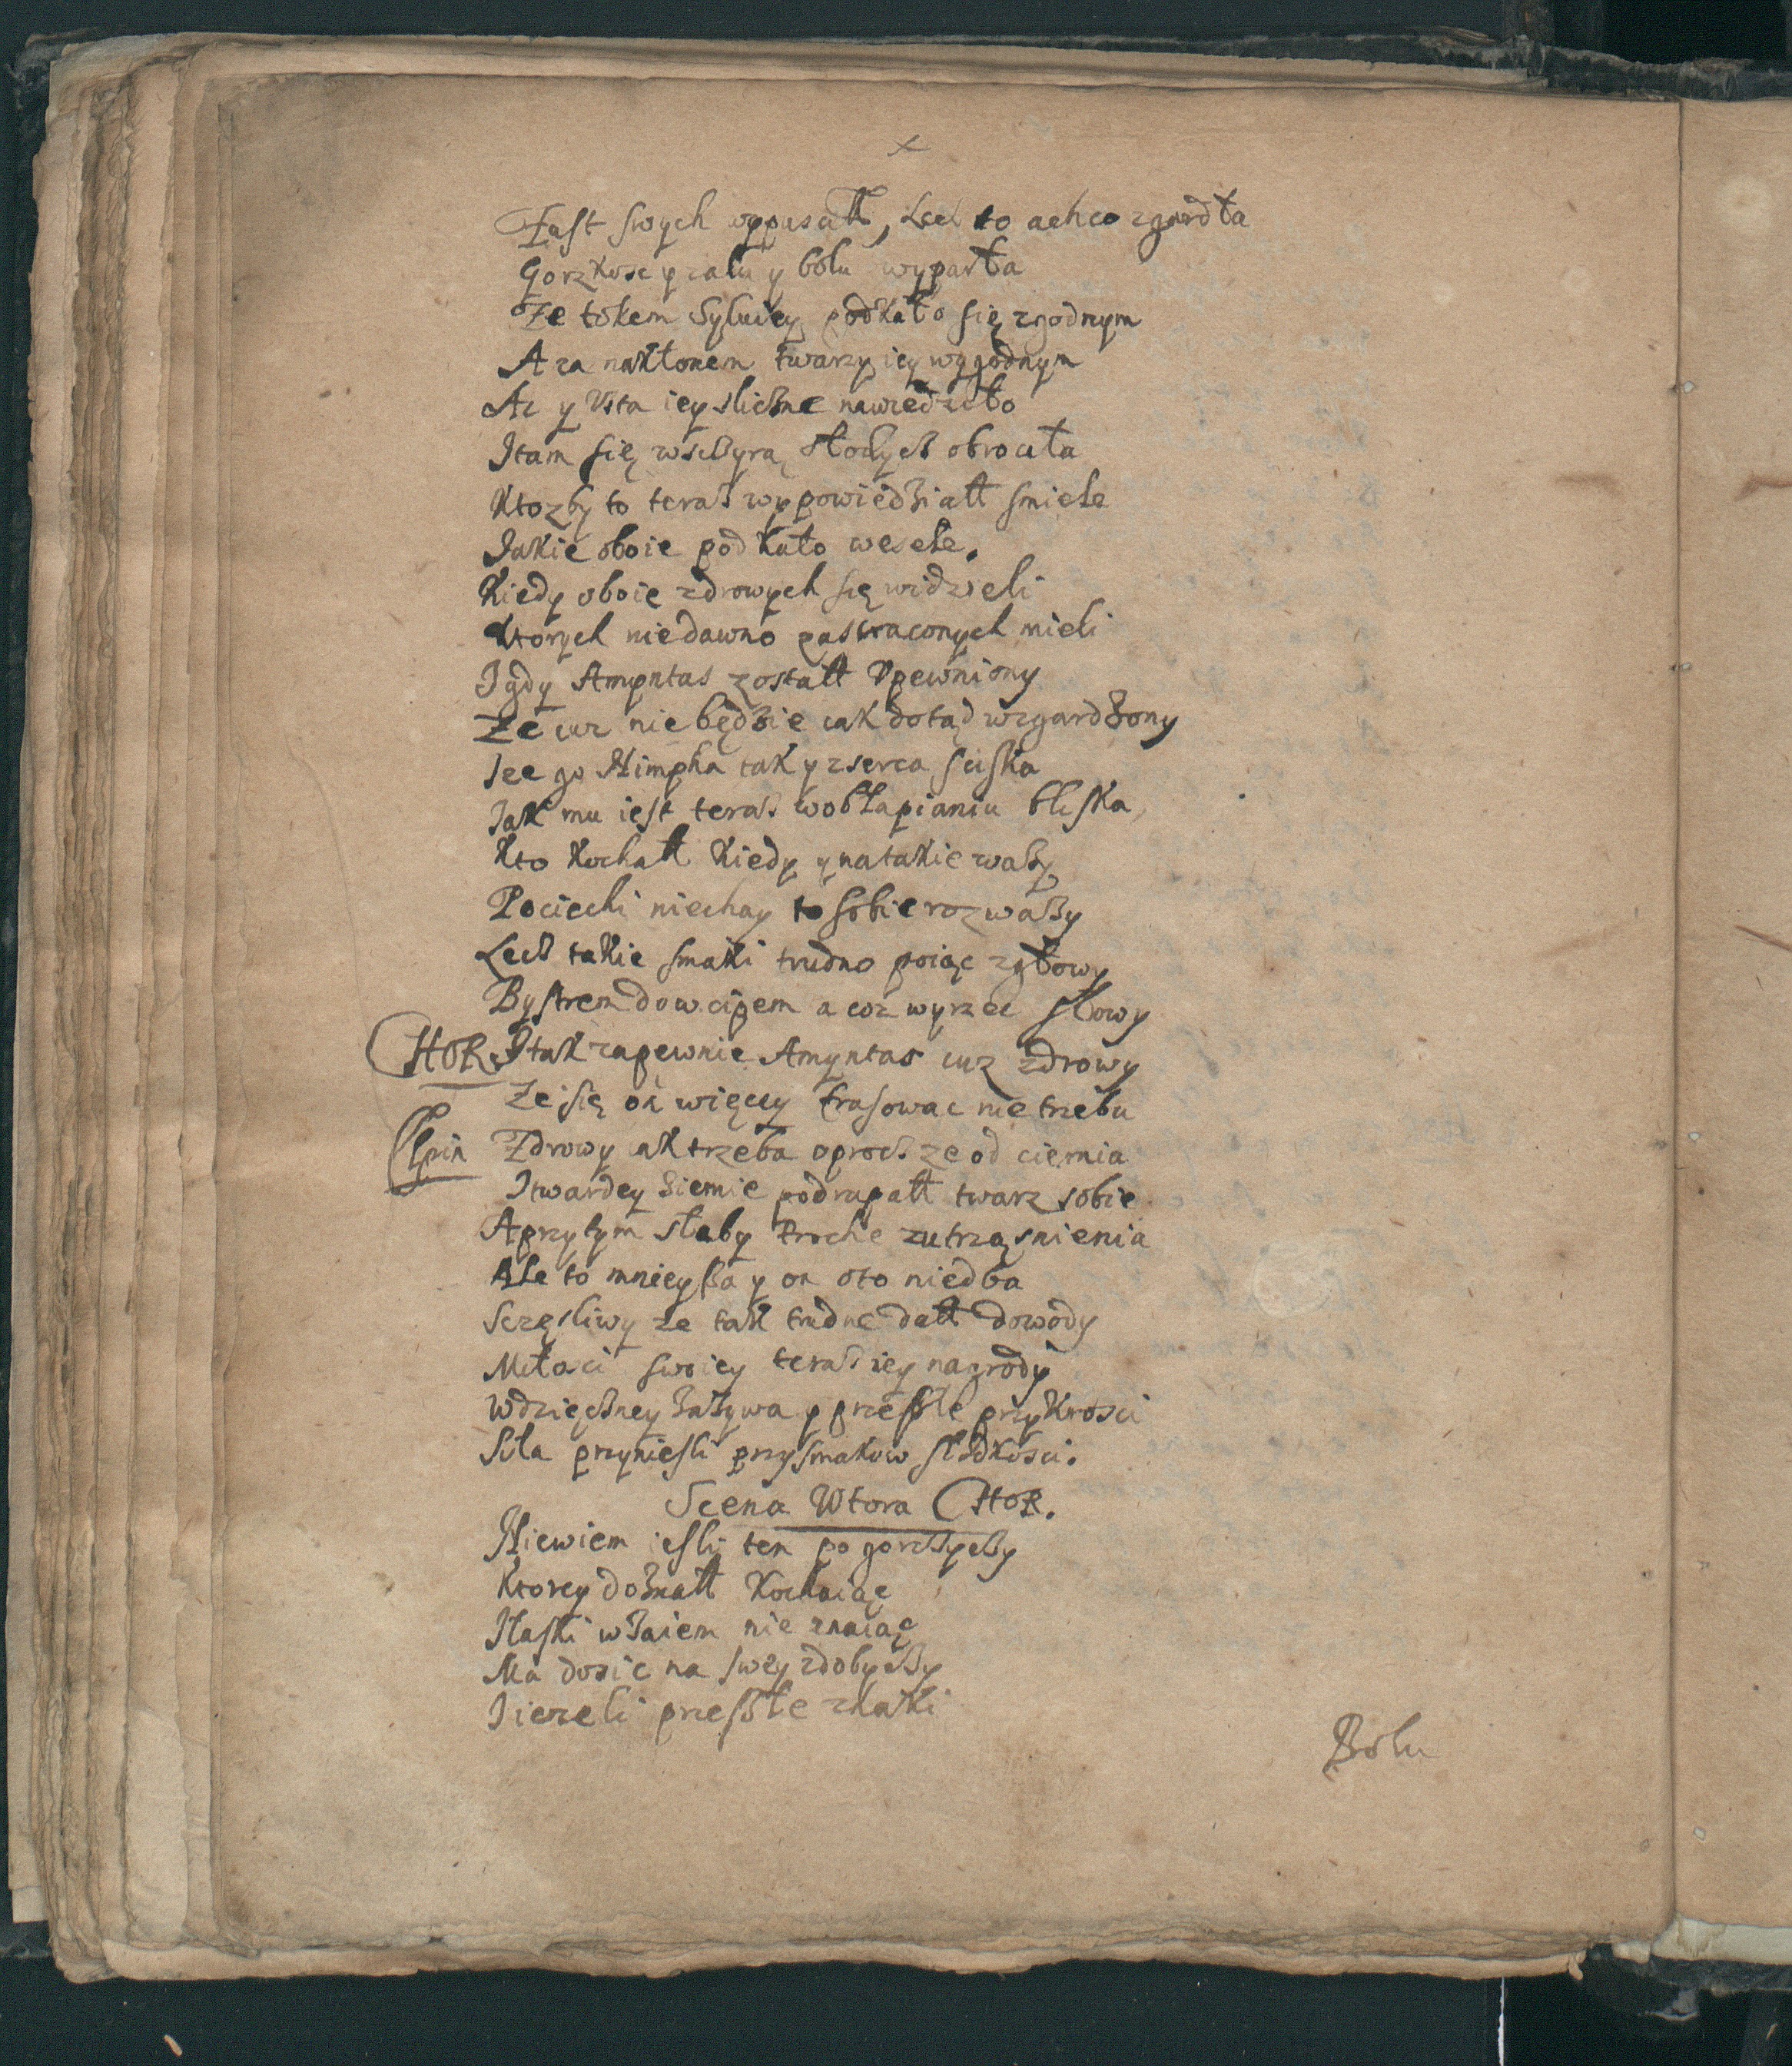 x
Z ust swych wypuscił, Lecz to ach co z gardła
Gorzkosc y zalu y bolu wyparła
Ze tokem Sylwiey podkało się zgodnym
A za nakłonem twarzy iey wygodnym
Az y Usta iey sliczne nawiedziło
I tam się w szczyrą słodycz obrociła
Ktozby to teraz wypowiedział smiele
Jakie oboie podkało wesele.
Kiedy oboie zdrowych się widzieli
Ktorych niedawno za straconych mieli
I gdy Amyntas został Upewniony
Ze iuz nie będzie iak dotąd wzgardzony
Jze go Nimpha tak y z serca sciska
Jak mu iest teraz w obłapianiu bliska
Kto kochał kiedy y na takie wazy
Pociechi niechay to sobie rozwazy
Lecz takie smaki trudno poiąc z głowy
Bystrem dowcipem a coz wyrzec słowy
CHOR. I tak zapewnie Amyntas iuz zdrowy
Ze się on więcey frasowac nie trzeba
Elpin Zdrowy ak trzeba oprocz ze od ciernia
I twardey ziemie podrapał twarz sobie
A przy tym słaby troche z utrząsnienia
Ale to mnieysza y on o to niedba
Sczęsliwy ze tak trudne dał dowody
Miłosci swoiey teraz iey nagrody
Wdzięczney zazywa y przeszłe przykrosci
Siła przyniesli przysmakow słodkosci.
Scena Wtora CHOR.
Niewiem iesli ten po goryczy
Ktorey doznał kochaiąc
I łaski w zaiem nie znaiąc
Ma dosic na swey zdobyczy
I iezeli przeszłe znaki
Bolu